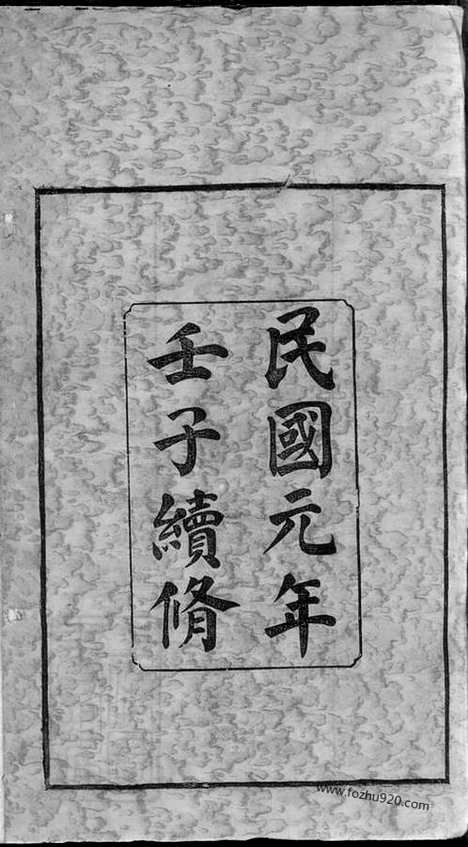 民國元年
壬子續脩
www.fozhu920.com